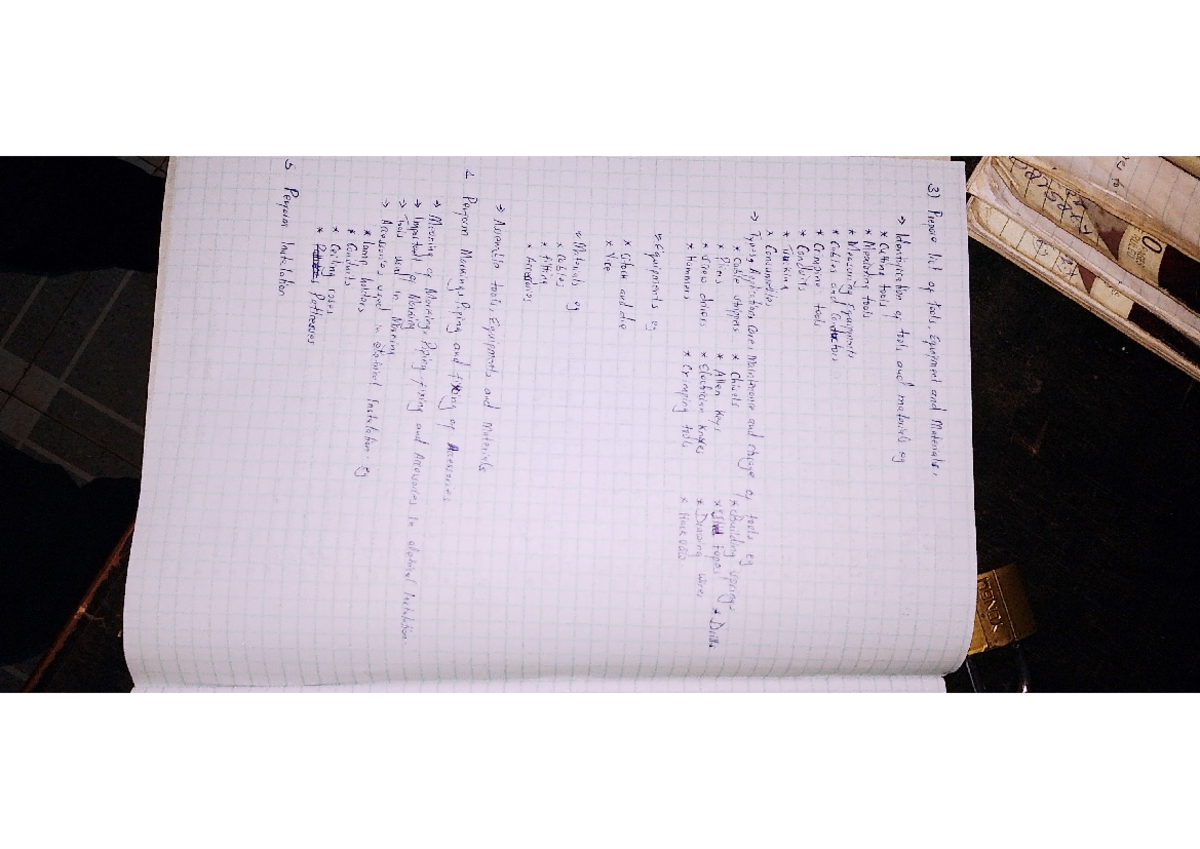 3) Prepare list of tools, Equipment and Materials.
→ Identification of tools and materials eg
* Cutting tools
* Bending tools
* Measuring Equipments
* Cables and Conductors
* Crimping tools
* Conduits
* Trunking
* Consumables
→ Types, Application, Care, Maintenance and storage of tools eg
* Cable strippers * Chisels * Building
* Pliers * Allen Keys * tapes * Drills
* Screw drivers * Electrician Knifes * Drawing wires
* Hammers * Crimping tools * Hack saw
→ Equipments eg
* Stock and die
* Vice
→ Materials eg
* Cables
* fitting
* Accessories
→ Assemble tools, Equipments and Materials
4 Perform Marking, Piping and fixing of Accessories
→ Meaning of Marking, Piping, fixing and Accessories in electrical Installation
→ Important of Marking
→ Tools used in Marking
→ Accessories used in electrical Installation eg
* Lamp holders
* Conduits
* Ceiling roses
* Pattresses
5 Perform Installation